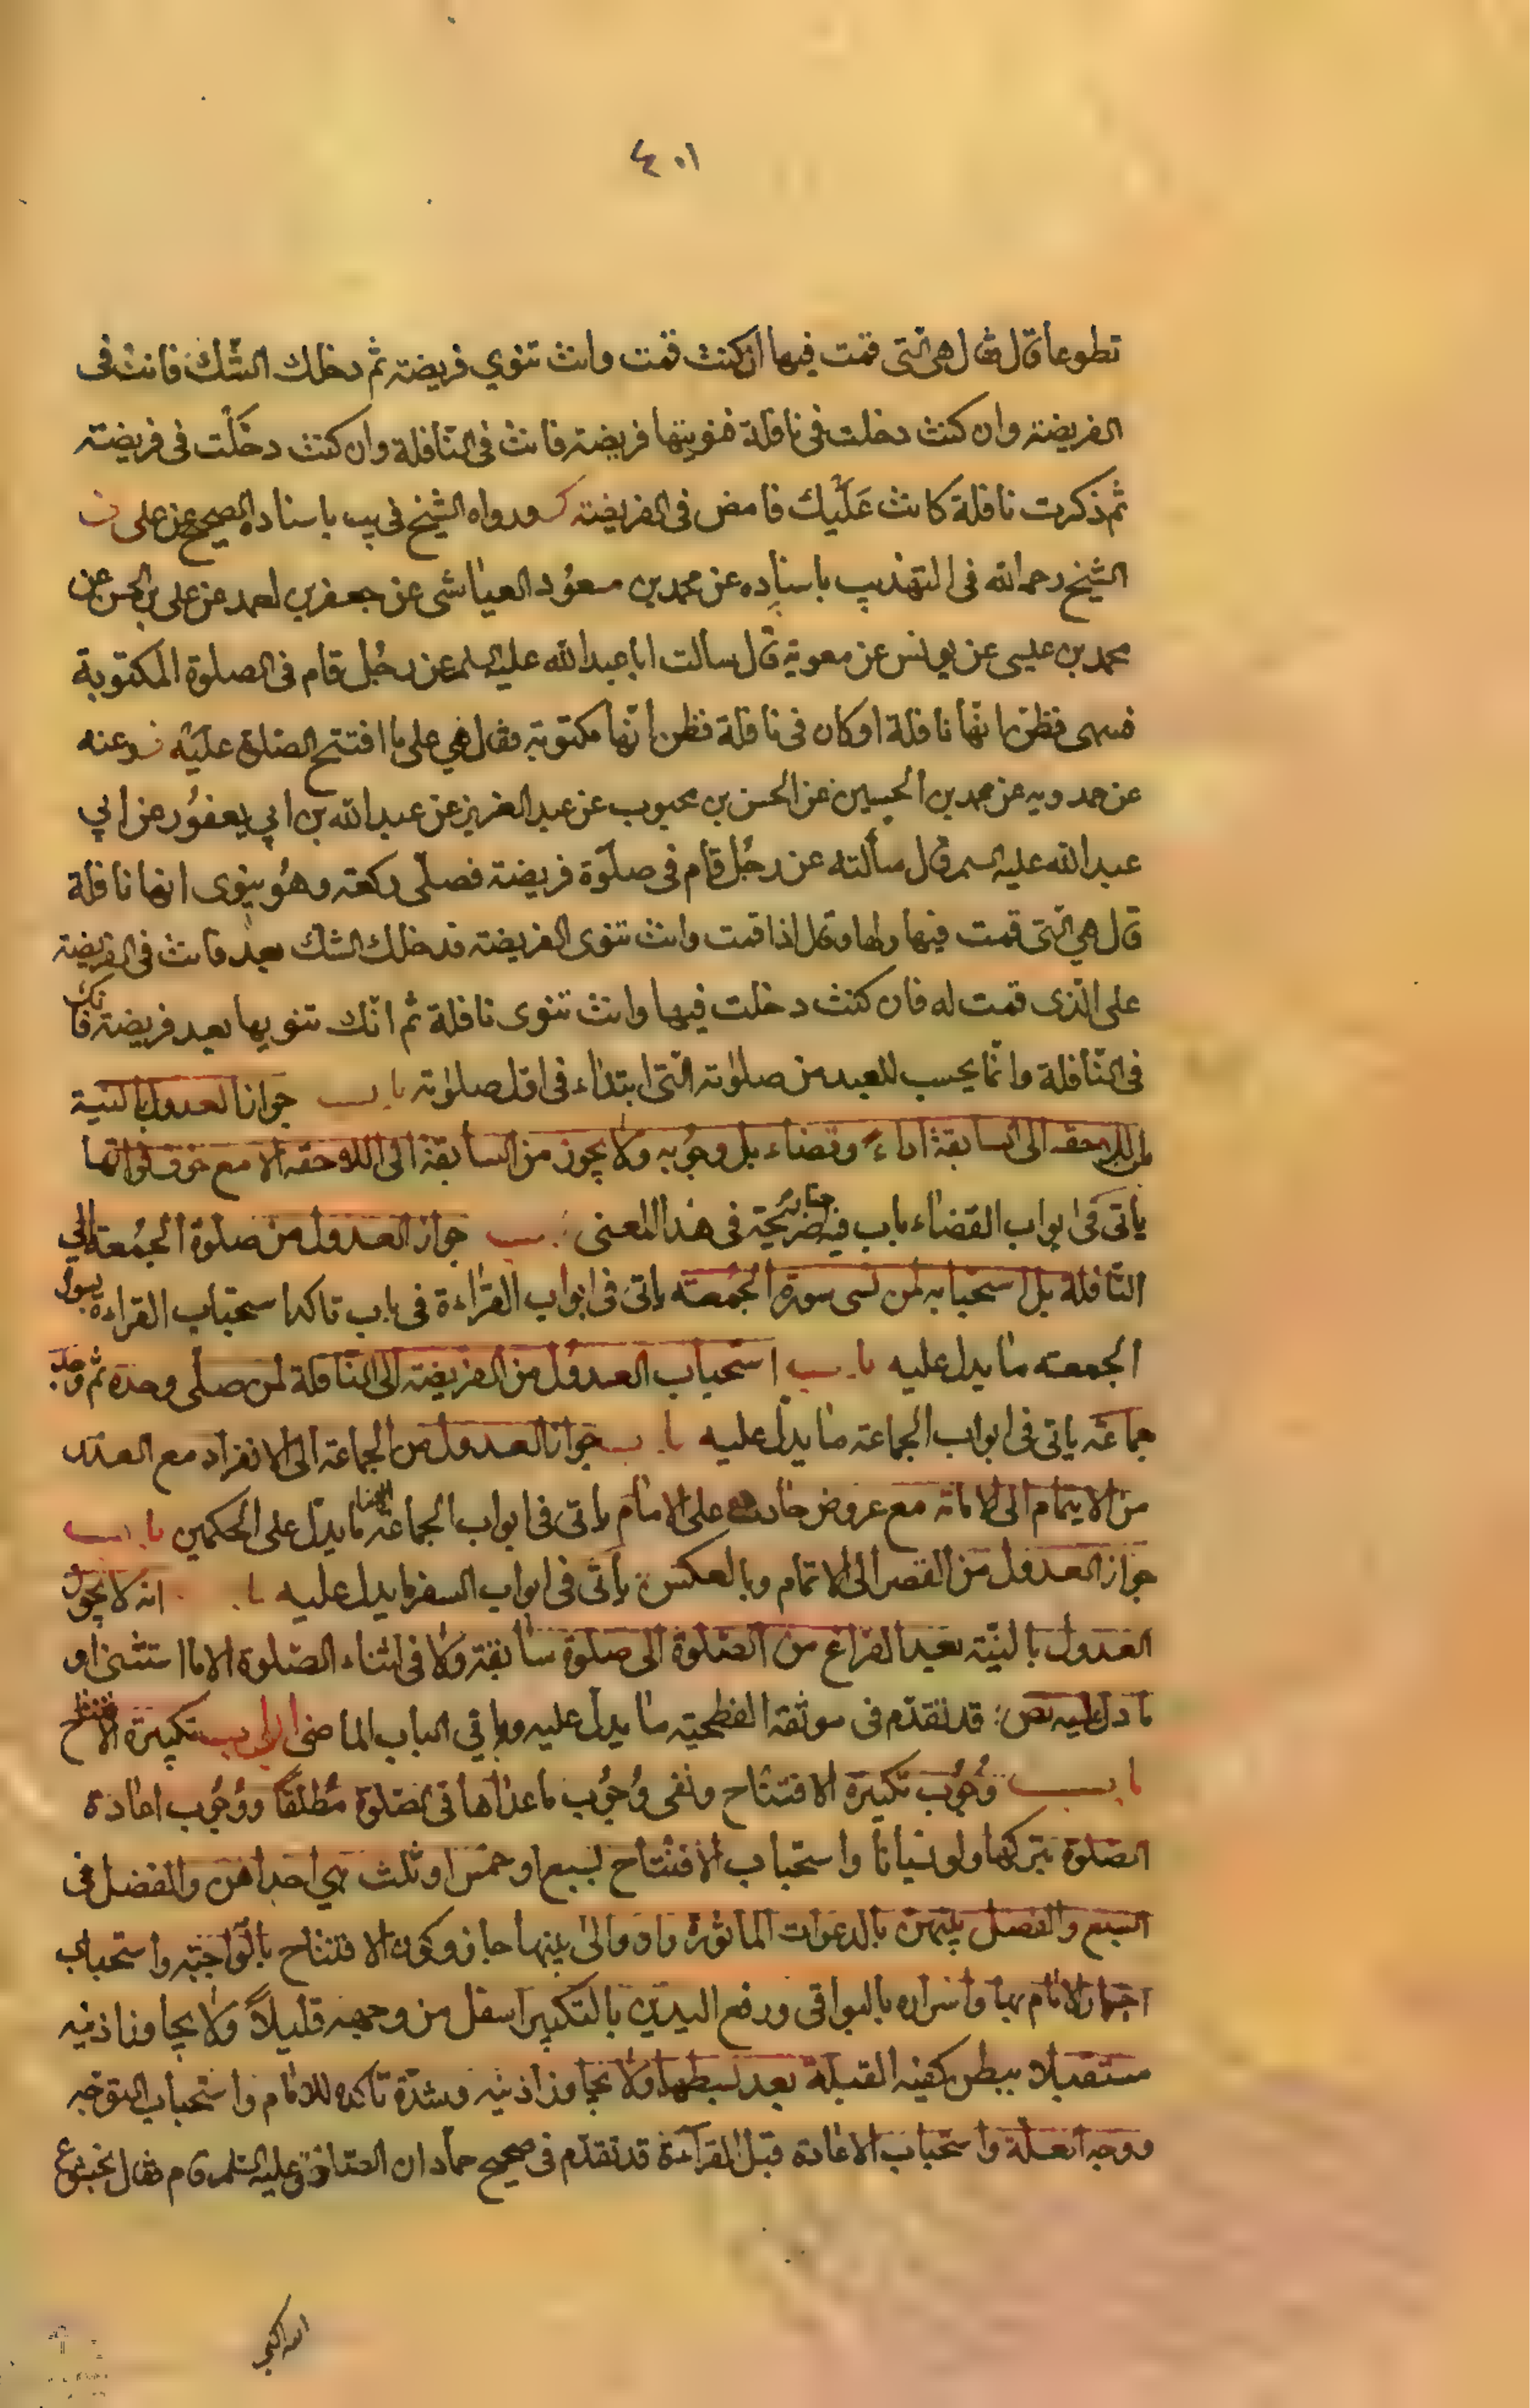 ٤٠١
تطوعا قال فقال هى التى قمت فيها ان كنت قمت وانت تنوي فريضة ثم دخلك الشك فانت فى
الفريضة وان كنت دخلت فى نافلة فنويتها فريضة فانت فى النافلة وان كنت دخلت فى فريضة
ثم ذكرت نافلة كانت عليك فامض فى الفريضة ورواه الشيخ فى يب باسناده الصحيح عن على
الشيخ رحمه الله فى التهذيب باسناده عن محمد بن مسعود العياشى عن جعفر بن احمد عن على بن الحسن عن
محمد بن عيسى عن يونس عن معوية قال سالت ابا عبد الله عليه السلم عن رجل قام فى الصلوة المكتوبة
فسهى فظن انها نافلة او كان فى نافلة فظن انها مكتوبة فقال هي على ما افتتح الصلوة عليه وعنه
عن حمدويه عن محمد بن الحسين عن الحسن بن محبوب عن عبد العزيز عن عبد الله بن ابي يعفور عن ابي
عبد الله عليه السلم قال سألته عن رجل قام فى صلوة فريضة فصلى ركعة وهو ينوى انها نافلة
قال هي التى قمت فيها ولها وقال اذا قمت وانت تنوى الفريضة فدخلك الشك بعد فانت فى الفريضة
على الذى قمت له فان كنت دخلت فيها وانت تنوى نافلة ثم انك تنويها بعد فريضة فانك
فى النافلة وانما يحسب للعبد من صلوته التى ابتداء فى اول صلوته باب جواز العدول بالنية
من اللاحقه الى السابقة اداء وقضاء بل وجوبه ولا يجوز من السابقة الى اللاحقه الا مع خوف فواتها
ياتى فى ابواب القضاء باب فيه صريحة فى هذا المعنى باب جواز العدول من صلوة الجمعة الي
النافلة بل استحبابه لمن نسى سورة الجمعة ياتى فى ابواب القراءة فى باب تاكد استحباب القراءة بسورة
الجمعة ما يدل عليه باب استحباب العدول من الفريضة الى النافلة لمن صلى وحده ثم وجد
جماعة ياتى فى ابواب الجماعة ما يدل عليه باب جواز العدول من الجماعة الى الانفراد مع العذر
من الايتمام الى الامامة مع عروض حادث على الامام ياتى فى ابواب الجماعة ايضا ما يدل على الحكمين باب
جواز العدول من القصر الى الاتمام وبالعكس ياتى فى ابواب السفر ما يدل عليه باب انه لا يجوز
العدول بالنية بعد الفراغ من الصلوة الى صلوة سابقة ولا فى اثناء الصلوة الا ما استثنى او
ما دل عليه نص قد تقدم فى موثقة الفطحية ما يدل عليه وباقي الباب الماضى ابواب تكبيرة الافتتاح
باب وجوب تكبيرة الافتتاح ونفى وجوب ما عداها فى الصلوة مطلقا ووجوب اعادة
الصلوة بتركها ولو نسيانا واستحباب الافتتاح بسبع او خمس او ثلث هي احداهن والفضل فى
السبع والفصل بينهن بالدعوات الماثورة ولو والى بينها جاز وكون الافتتاح بالواجبة واستحباب
اجهار الامام بها واسراره بالبواقى ورفع اليدين بالتكبير اسفل من وجهه قليلاً ولا يجاوز اذنيه
مستقبلا ببطن كفيه القبلة بعد بسطها ولا يجاوز اذنيه وشدة تاكده للامام واستحباب التوجه
ووجه العلة واستحباب الاعادة قبل القرآءة قد تقدم فى صحيح حماد ان الصادق عليه السلم قام فقال بخشوع
الله اكبر